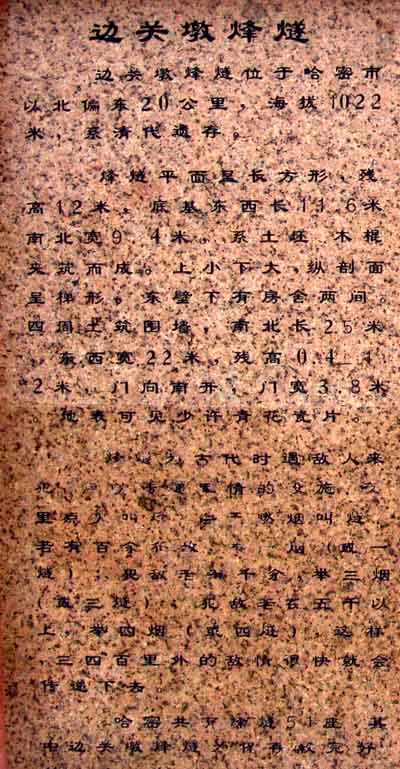 边关墩烽燧
边关墩烽燧位于哈密市
以北偏东20公里，海拔1022
米，系清代遗存。
烽燧平面呈长方形，残
高12米，底基东西长11.6米
南北宽9.4米，系土坯、木棍
夹筑而成。上小下大，纵剖面
呈梯形。东壁下有房舍两间。
四周土筑围墙，南北长25米
，东西宽22米，残高0.4—1.
2米，门向南开，门宽3.8米
。地表可见少许青花瓷片。
烽燧为古代时遇敌人来
犯，情的设施，
里点火叫烟叫燧，
若有百余烟（或一
燧），千余，举三烟
（或三燧），犯敌若在五千以
上，举四烟（或四燧），这样
，三四百里外的敌情很快就会
传递下去。
哈密共有烽燧51座，其
中边关墩烽燧保存较完好